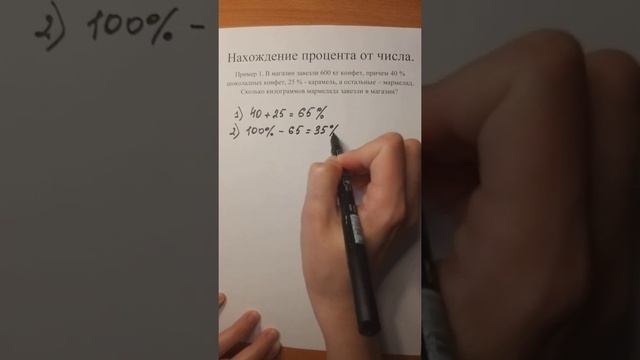 Нахождение процента от числа.
Пример 1. В магазин завезли 600 кг конфет, причем 40 %
шоколадных конфет, 25 % - карамель, а остальные – мармелад.
Сколько килограммов мармелада завезли в магазин?
1) 40 + 25 = 65%
2) 100% - 65 = 35%
2) 100% -